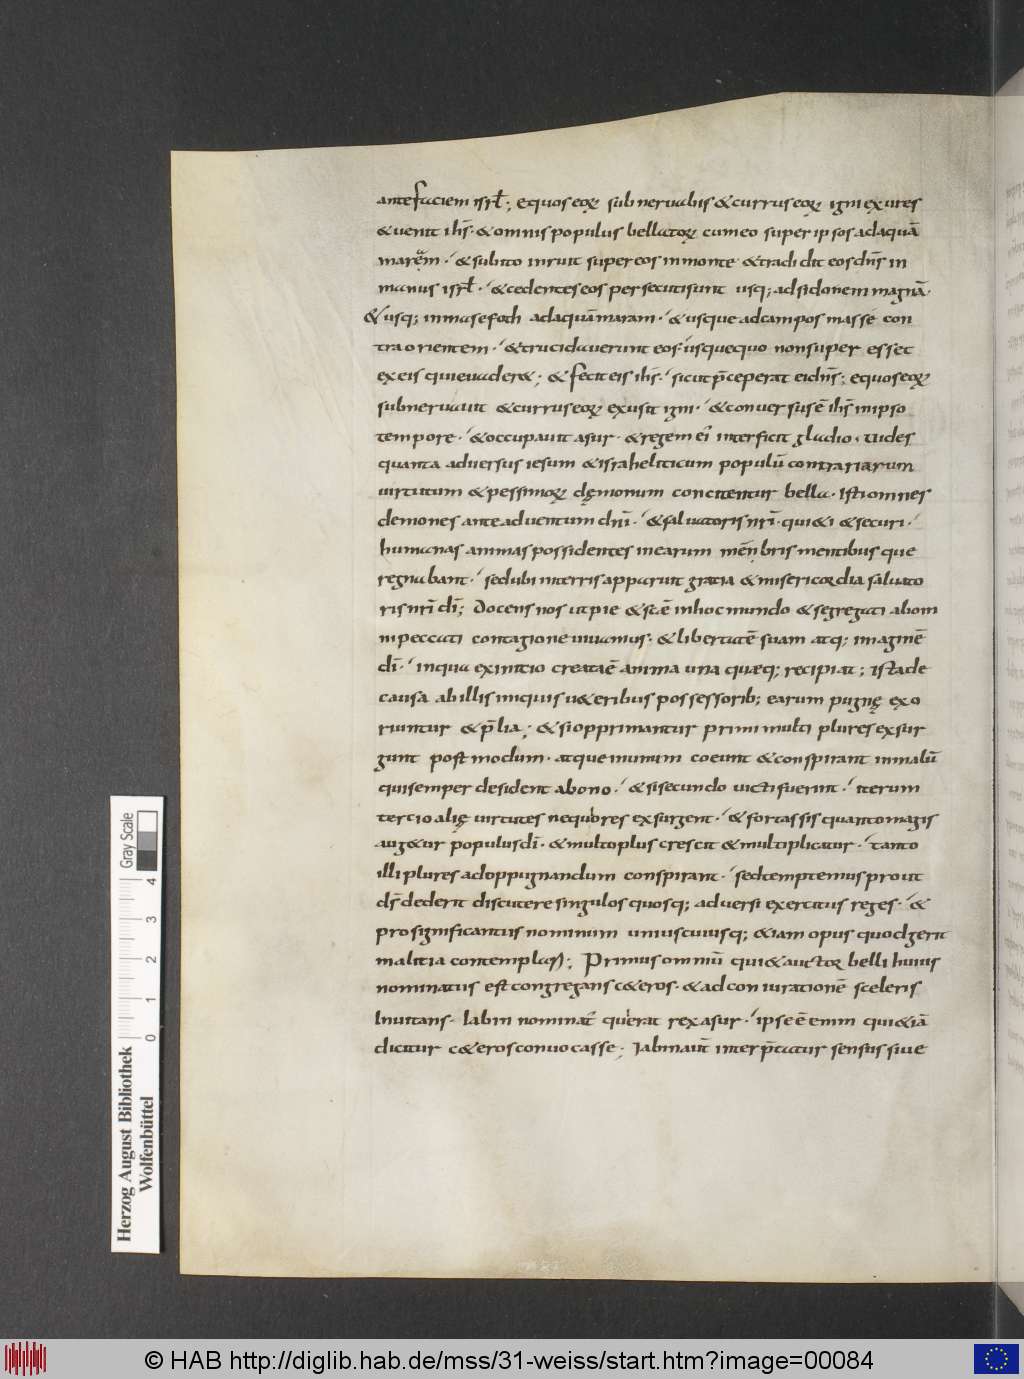 antefaciem isrł; equos eoꝝ subneruabis & currus eoꝝ igni exures
& uenit ihs̄· & omnis populus bellatoꝝ cum eo super ipsos ad aquā
maręm· & subito inruit super eos in monte· & tradidit eos dn̄s in
manus isrł· & cedentes eos persecuti sunt usq; ad sidonem magnā·
& usq; in masefoth ad aquām maram· & usque ad campos massé con
tra orientem· & trucidauerunt eos· usquequo non super esset
ex eis qui euader&; & fecit eis ihs̄· sicut p̄ceperat ei dn̄s; equos eoꝝ
subneruauit & currus eoꝝ exusit igni· & conuersus ē ihs̄ in ipso
tempore· & occupauit asur· & regem eī interficit gladio· Uides
quanta aduersus iesum & israheliticum populū contrariarum
uirtutum & pessimoꝝ dęmonum concitentur bella· Isti omnes
demones ante aduentum dn̄i· & saluatoris nr̄i· qui&i & securi·
humanas animas possidentes in earum mēnbris mentibusque
regnabant· sed ubi in terris apparuit gratia & misericordia saluato
ris nr̄i dī; Docens nos ut pie & scē in hoc mundo & segregati abom
ni peccati contagione uiuamus· & libertatē suam atq; imaginē
dī· in qua ex initio creataē anima una quæq; recipiat; Ista de
causa ab illis iniquis u&eribus possessorib; earum pugnę exo
riuntur & p̄lia; & si opprimantur primi multi plures exsur
gunt post modum· atque in unum coeunt & conspirant in malū
qui semper desident a bono· & si secundo uicti fuerint· iterum
tercio alię uirtutes nequiores exsurgent· & fortassis quanto magis
aug&ur populus dī· & multo plus crescit & multiplicatur· tanto
illi plures ad oppugnandum conspirant· sed temptemus prout
ds̄ dederit discutere singulos quosq; aduersi exercitus reges· &
pro significantiis nominum uniuscuiusq; &iam opus quod gerit
malitia contemplari; Primus omniū qui & auctor belli huius
nominatus est congregans c&eros· & ad coniurationē sceleris
Inuitans· Iabin nominat̄ qui erat rex asur· ipse ē enim qui &iā
dicitur c&eros conuocasse; Iabin aut̄ interp̄tatur sensus siue
Herzog August Bibliothek
Wolfenbüttel
0 1 2 3 4
Gray Scale
© HAB http://diglib.hab.de/mss/31-weiss/start.htm?image=00084